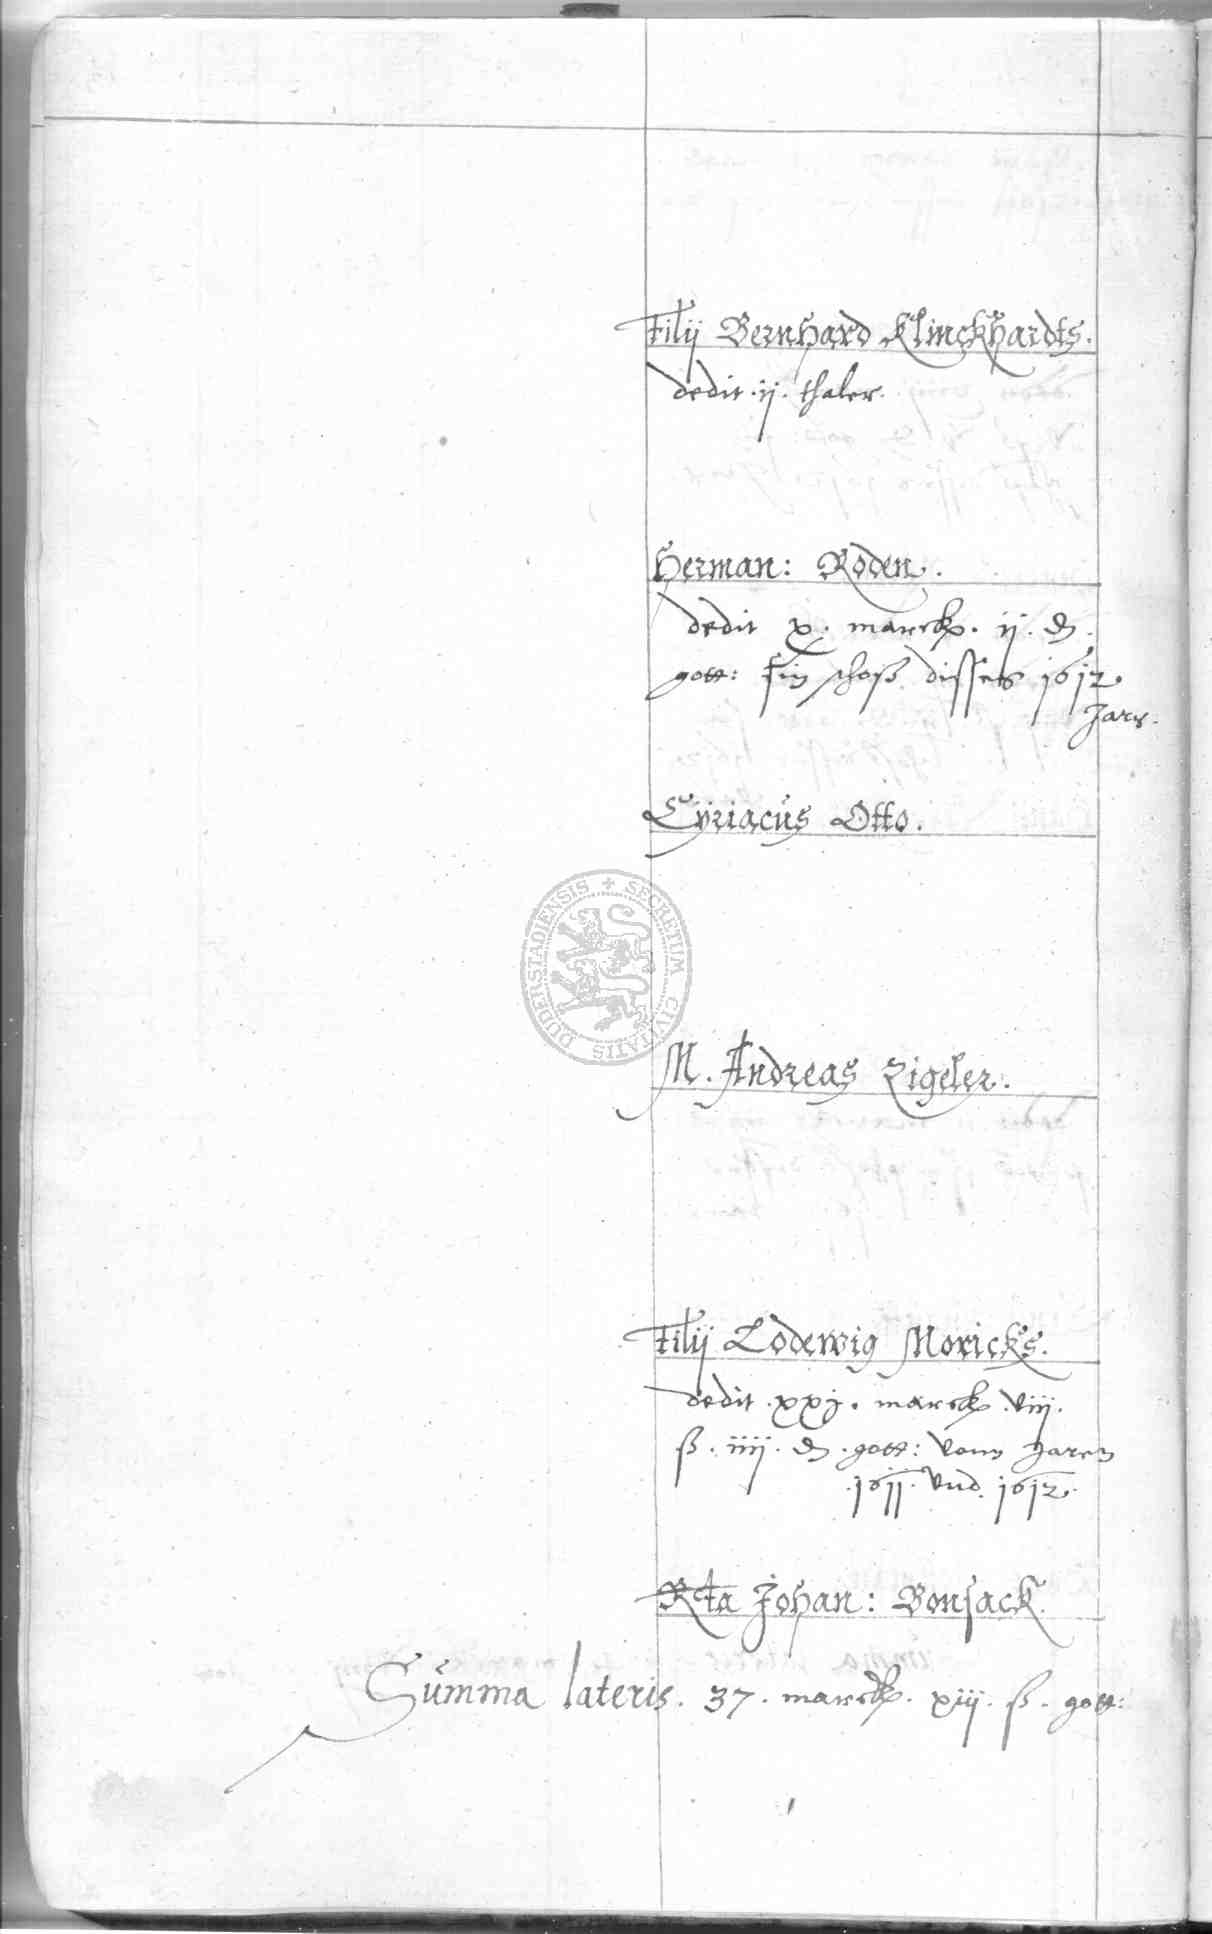 Filij Bernhard Klinckhardts.
dedit ·ij· thaler.
Herman: Roden.
dedit x. marck. ij. ₰.
gott: sin schoß disses 1612.
Jars.
Cyriacus Otto.
SECRETUM CIVITATIS DUDERSTADIENSIS
M. Andreas Zigeler.
Filij Lodewig Moricks.
dedit ·xxj. marck viij.
ß. iiij. ₰. gott: vonn Jaren
·1611· vnd. 1612.
Rta Johan: Bonsack.
Summa lateris. 37. marck. xiij. ß. gott: